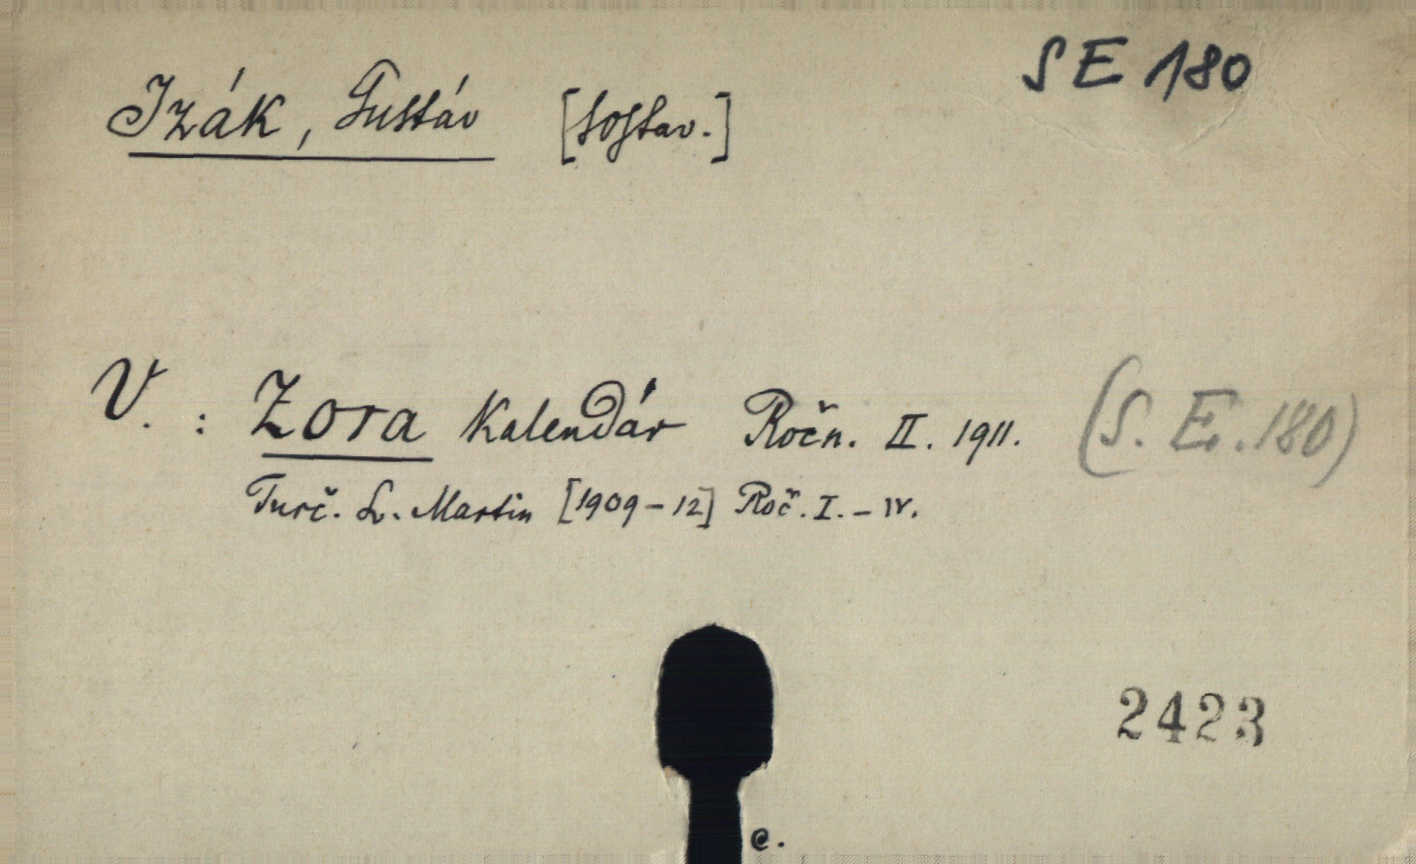 SE 180
Izák, Gustáv [sostav.]
V. : Zora Kalendár Ročn. II. 1911. (S. E. 180)
Turč. Sv. Martin [1909-12] Roč. I. - IV.
2423
e.